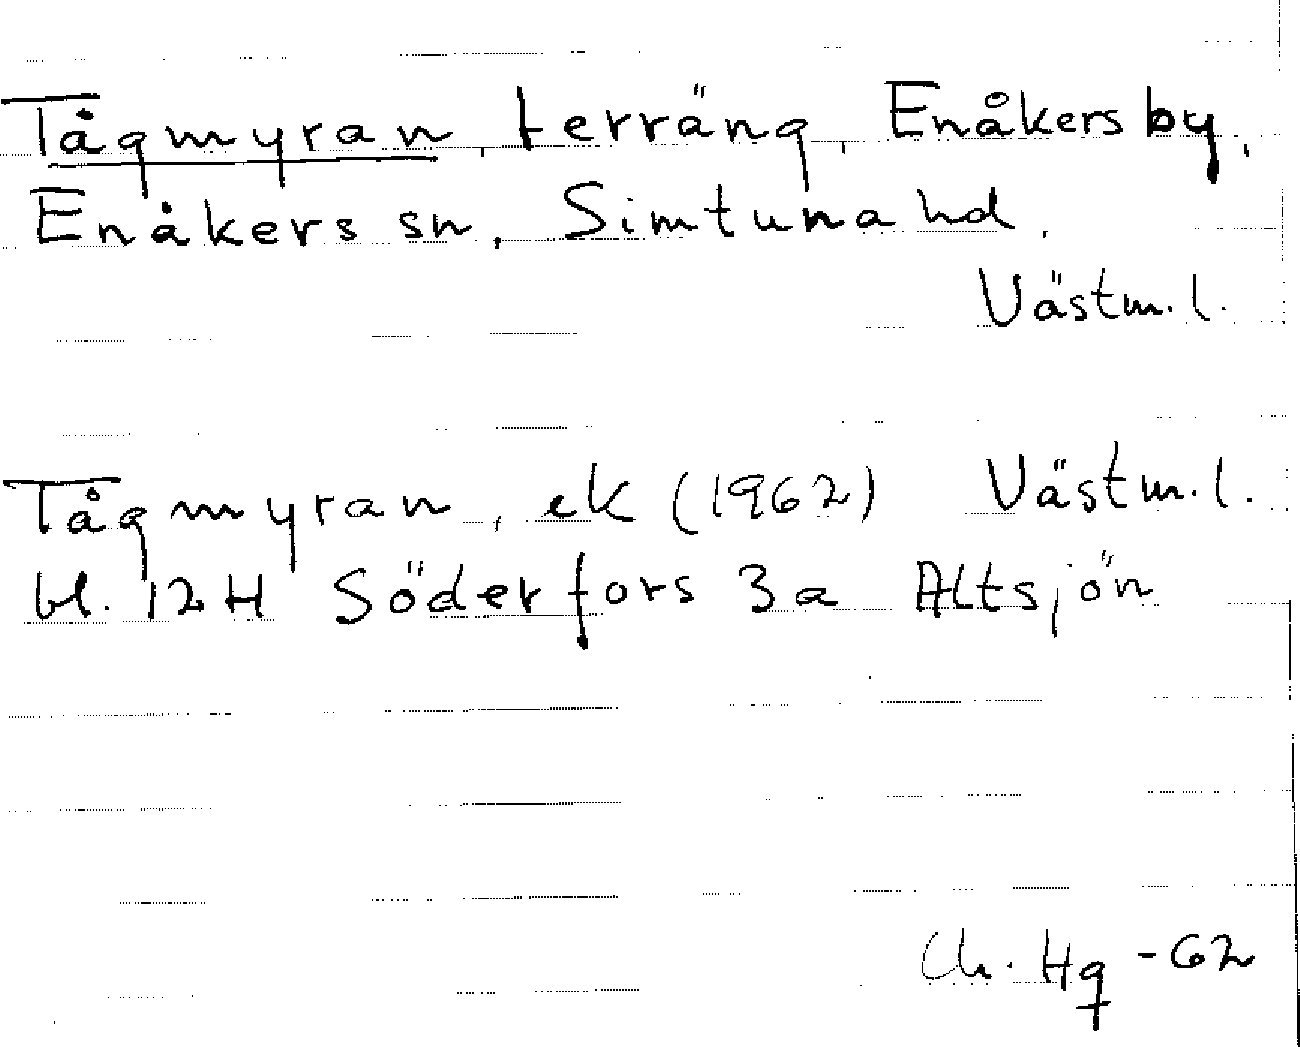 Tågmyran, terräng, Enåkersby,
Enåkers sn, Simtuna hd,
Västm.l.
Tågmyran, ek (1962) Västm.l.
bl. 12H Söderfors 3a Altsjön
Ch. Hg -62